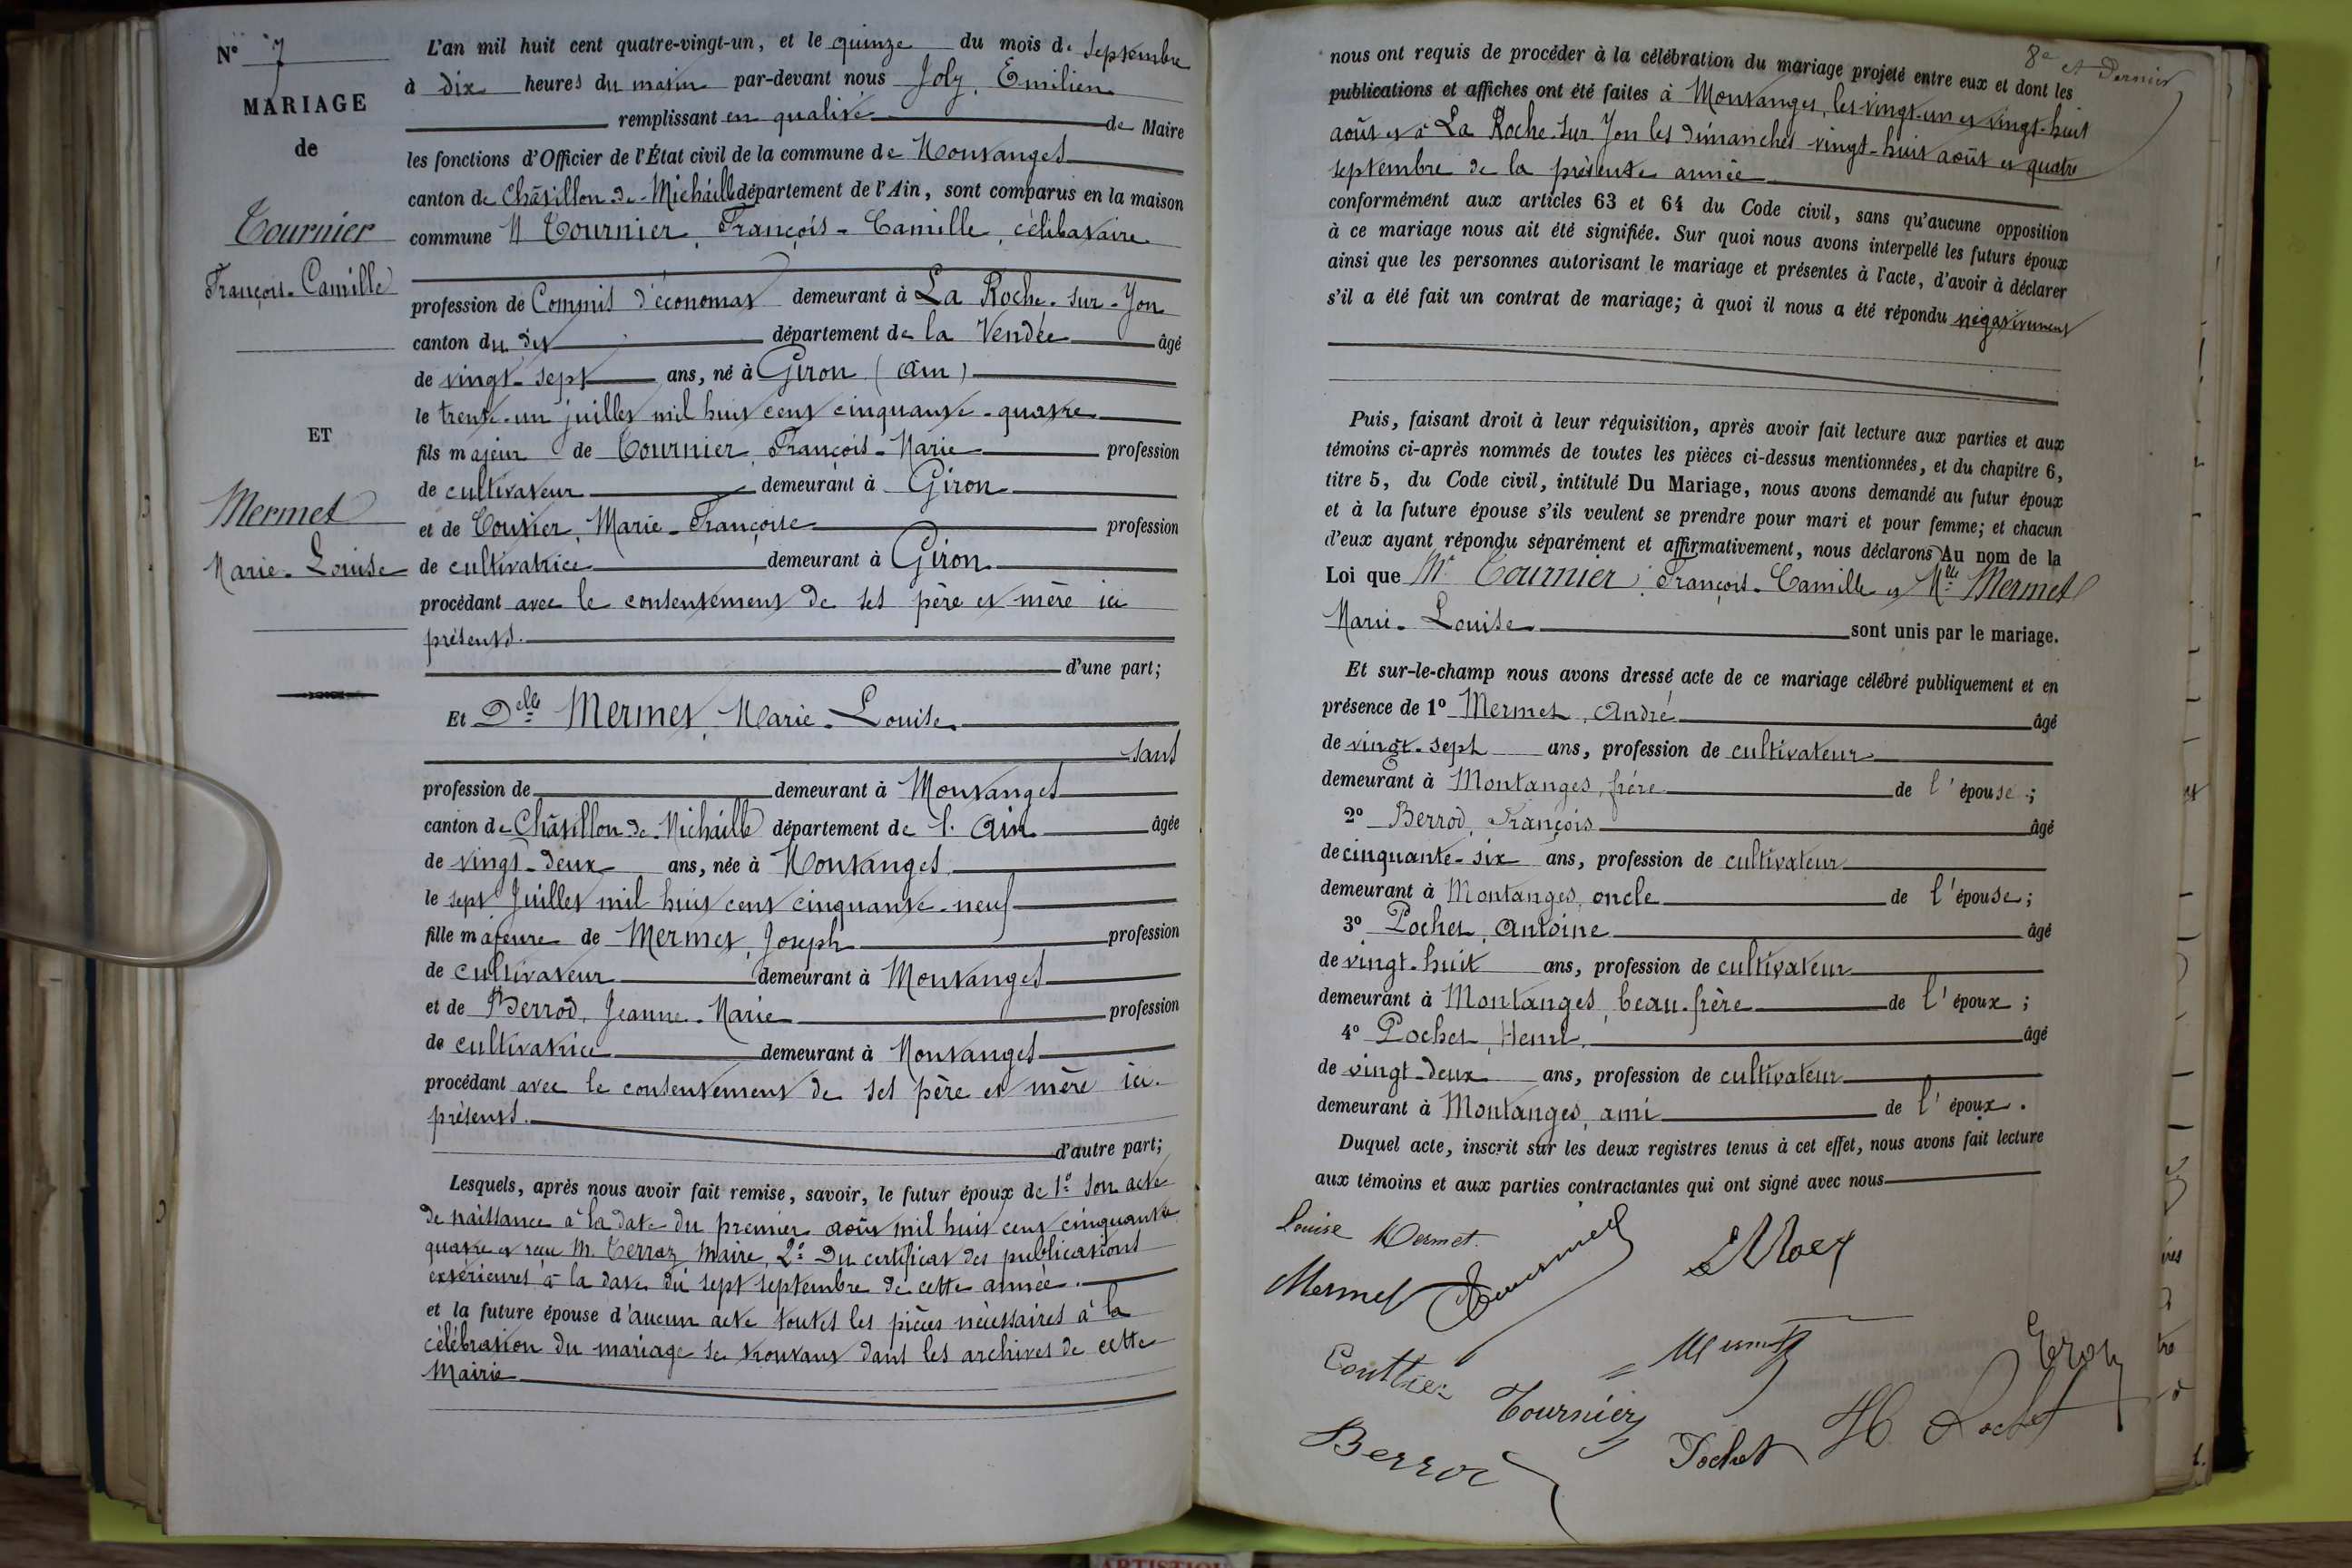 N° 7
MARIAGE
de
Tournier
François-Camille
ET
Mermet
Marie-Louise
L'an mil huit cent quatre-vingt-un, et le quinze du mois de Septembre
à dix heures du matin par-devant nous Joly, Emilien
remplissant en qualité de Maire
les fonctions d'Officier de l'État civil de la commune de Montanges
canton de Châtillon-de-Michaille département de l'Ain, sont comparus en la maison
commune M Tournier, François-Camille, célibataire
profession de Commis d'économat demeurant à La Roche-sur-Yon
canton du dit département de la Vendée âgé
de vingt-sept ans, né à Giron (Ain)
le trente-un juillet mil huit cent cinquante-quatre
fils majeur de Tournier, François-Marie profession
de cultivateur demeurant à Giron
et de Coutier, Marie-Françoise profession
de cultivatrice demeurant à Giron
procédant avec le consentement de ses père et mère ici
présents.
d'une part;
Et Delle Mermet, Marie-Louise
sans
profession de demeurant à Montanges
canton de Châtillon-de-Michaille département de l'Ain âgée
de vingt-deux ans, née à Montanges
le sept Juillet mil huit cent cinquante-neuf
fille majeure de Mermet, Joseph profession
de cultivateur demeurant à Montanges
et de Berrod, Jeanne-Marie profession
de cultivatrice demeurant à Montanges
procédant avec le consentement de ses père et mère ici
présents.
d'autre part;
Lesquels, après nous avoir fait remise, savoir, le futur époux de 1° son acte
de naissance à la date du premier août mil huit cent cinquante
quatre et reçu M. Terraz Maire, 2° Du certificat des publications
extérieures à la date du sept septembre de cette année.
et la future épouse d'aucun acte toutes les pièces nécessaires à la
célébration du mariage se trouvant dans les archives de cette
Mairie
8e et Dernier
nous ont requis de procéder à la célébration du mariage projeté entre eux et dont les
publications et affiches ont été faites à Montanges, les vingt-un et vingt-huit
août et à La Roche-sur-Yon les dimanches vingt-huit août et quatre
septembre de la présente année
conformément aux articles 63 et 64 du Code civil, sans qu'aucune opposition
à ce mariage nous ait été signifiée. Sur quoi nous avons interpellé les futurs époux
ainsi que les personnes autorisant le mariage et présentes à l'acte, d'avoir à déclarer
s'il a été fait un contrat de mariage; à quoi il nous a été répondu négativement
Puis, faisant droit à leur réquisition, après avoir fait lecture aux parties et aux
témoins ci-après nommés de toutes les pièces ci-dessus mentionnées, et du chapitre 6,
titre 5, du Code civil, intitulé Du Mariage, nous avons demandé au futur époux
et à la future épouse s'ils veulent se prendre pour mari et pour femme; et chacun
d'eux ayant répondu séparément et affirmativement, nous déclarons Au nom de la
Loi que Mr Tournier, François-Camille et Mlle Mermet
Marie-Louise sont unis par le mariage.
Et sur-le-champ nous avons dressé acte de ce mariage célébré publiquement et en
présence de 1° Mermet, André âgé
de vingt-sept ans, profession de cultivateur
demeurant à Montanges, frère de l'épouse;
2° Berrod, François âgé
de cinquante-six ans, profession de cultivateur
demeurant à Montanges, oncle de l'épouse;
3° Pochet, Antoine âgé
de vingt-huit ans, profession de cultivateur
demeurant à Montanges, beau-frère de l'époux;
4° Pochet, Henri. âgé
de vingt-deux ans, profession de cultivateur
demeurant à Montanges, ami de l'époux.
Duquel acte, inscrit sur les deux registres tenus à cet effet, nous avons fait lecture
aux témoins et aux parties contractantes qui ont signé avec nous
Louise Mermet.
Mermet
Couttier
Tournier
Berrod
Pochet
H. Pochet